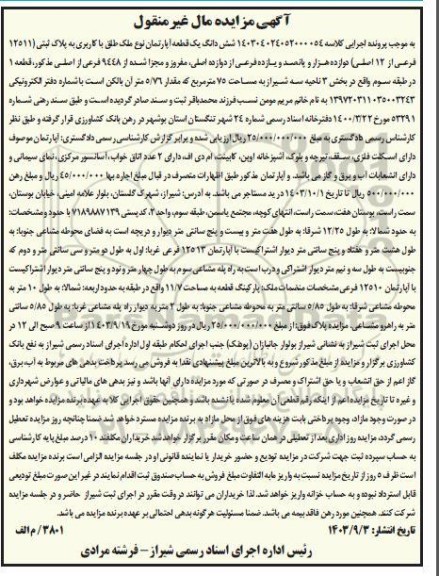 آگهی مزایده مال غیر منقول
به موجب پرونده اجرایی کلاسه ۱۴۰۳۰۴۰۲۴۰۵۲۰۰۰۰۵۴ شش دانگ یک قطعه آپارتمان نوع ملک طلق با کاربری به پلاک ثبتی (۱۲۵۱۱
فرعی از ۱۲ اصلی) دوازده هزار و پانصد و یازده فرعی از دوازده اصلی، مفروز و مجزا شده از ۹۴۴۸ فرعی از اصلی مذکور، قطعه ۱
در طبقه سوم واقع در بخش ۳ ناحیه سه شیراز به مساحت ۷۵ مترمربع که مقدار ۵/۷۶ متر آن بالکن است با شماره دفتر الکترونیکی
۱۳۹۷۲۰۳۱۱۰۳۵۰۰۳۲۴۳ به نام خانم مریم مومن نسب فرزند محمدباقر ثبت و سند صادر گردیده است و طبق سند رهنی شماره
۵۳۲۹۱ مورخ ۱۴۰۰/۳/۲۲ دفترخانه اسناد رسمی شماره ۲۴ شهر تنگستان استان بوشهر در رهن بانک کشاورزی قرار گرفته و طبق نظر
کارشناس رسمی دادگستری به مبلغ ۲۵/۰۰۰/۰۰۰/۰۰۰ ریال ارزیابی شده و برابر گزارش کارشناسی رسمی دادگستری: آپارتمان موصوف
دارای اسکلت فلزی، سقف تیرچه و بلوک، آشپزخانه اوپن، کابینت، ام دی اف، دارای ۲ عدد اتاق خواب، آسانسور مرکزی، نمای سیمانی و
دارای انشعابات آب و برق و گاز می باشد. و آپارتمان مذکور طبق اظهارات متصرف در قبال مبلغ اجاره بها ۴۵/۰۰۰/۰۰۰ ریال و مبلغ رهن
۵۰۰/۰۰۰/۰۰۰ ریال تا تاریخ ۱۴۰۳/۱۰/۱ در ید مستاجر می باشد. به آدرس: شیراز، شهرک گلستان، بلوار علامه امینی، خیابان بوستان،
سمت راست، بوستان هفت، سمت راست، انتهای کوچه، مجتمع یاسمن، طبقه سوم، واحد ۲، کدپستی ۷۱۸۹۸۸۷۱۳۹ با حدود و مشخصات:
به حدود شمالا: به طول ۱۲/۲۵ شرقا: به طول هفت متر و بیست و پنج سانتی متر دیوار و دریچه است به فضای محوطه مشاعی جنوبا: به
طول هشت متر و هفتاد و پنج سانتی متر دیوار اشتراکیست با آپارتمان ۱۲۵۱۳ فرعی غربا: اول به طول دو متر و سی سانتی متر و دوم که
جنوبیست به طول سه و نیم متر دیوار اشتراکی و درب است به راه پله مشاعی سوم به طول چهار متر و نود و پنج سانتی متر دیوار اشتراکیست
با آپارتمان ۱۲۵۱۰ فرعی مشخصات منضمات ملک: پارکینگ قطعه به مساحت ۱۱/۷ واقع در طبقه به حدود اربعه: شمالا: به طول ۱۰ متر به
محوطه مشاعی شرقا: به طول ۵/۸۵ سانتی متر به محوطه مشاعی جنوبا: به طول ۲ متر به دیوار راه پله مشاعی غربا: به طول ۵/۸۵ سانتی
متر به راهرو مشاعی. مزایده پلاک فوق: از مبلغ ۲۵/۰۰۰/۰۰۰/۰۰۰ ریال در روز دوشنبه مورخ ۱۴۰۳/۹/۱۹ از ساعت ۹ صبح الی ۱۲ در
محل اجرای ثبت شیراز به نشانی شیراز بولوار جانبازان (پوهنک) جنب اجرای احکام طبقه اول اداره اجرای اسناد رسمی شیراز به نفع بانک
کشاورزی برگزار و مزایده از مبلغ مذکور شروع و به بالاترین مبلغ پیشنهادی نقدا به فروش می رسد پرداخت بدهی های مربوط به آب، برق،
گاز اعم از حق انشعاب و یا حق اشتراک و مصرف در صورتی که مورد مزایده دارای آنها باشد و نیز بدهی های مالیاتی و عوارض شهرداری
و غیره تا تاریخ مزایده اعم از اینکه رقم قطعی آن معلوم شده یا نشده باشد و همچنین حقوق اجرایی کلا به عهده برنده مزایده خواهد بود و
در صورت وجود مازاد، وجوه پرداختی بابت هزینه های فوق از محل مازاد به برنده مزایده مسترد خواهد شد ضمنا چنانچه روز مزایده تعطیل
رسمی گردد، مزایده روز اداری بعد از تعطیلی در همان ساعت و مکان مقرر برگزار خواهد شد خریداران مکلفند ۱۰ درصد مبلغ پایه کارشناسی
به حساب سپرده ثبت جهت شرکت در مزایده تودیع و حضور خریدار یا نماینده قانونی او در جلسه مزایده الزامی است برنده مزایده مکلف
است ظرف ۵ روز از تاریخ مزایده نسبت به واریز مابه التفاوت مبلغ فروش به حساب صندوق ثبت اقدام نمایند در غیر این صورت مبلغ تودیعی
قابل استرداد نبوده و به حساب خزانه واریز خواهد شد. لذا خریداران می توانند در وقت مقرر در اجرای ثبت شیراز حاضر و در جلسه مزایده
شرکت کنند. همچنین مورد رهن فاقد بیمه می باشد. ضمنا مسئولیت هرگونه بدهی احتمالی بر عهده برنده مزایده می باشد.
تاریخ انتشار: ۱۴۰۳/۹/۳
۳۸۰۱/م الف
رئیس اداره اجرای اسناد رسمی شیراز – فرشته مرادی